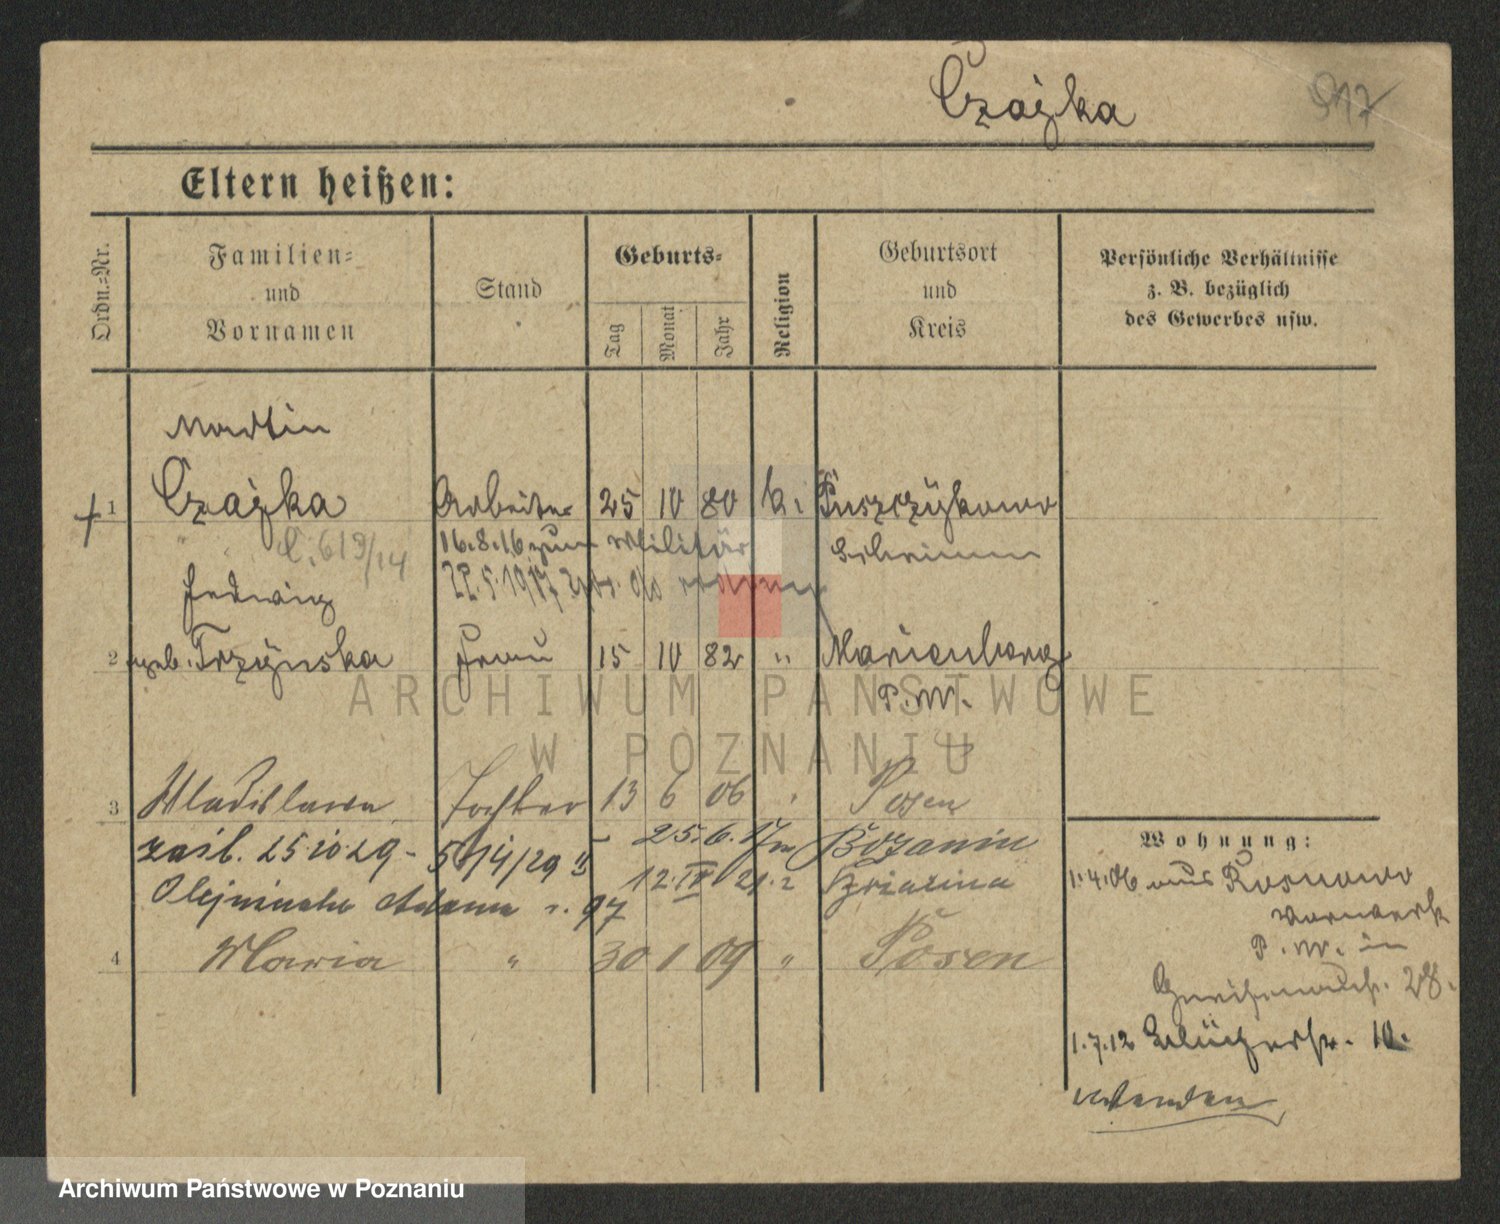 Czajka
917
Eltern heißen:
Ordn.-Nr.
Familien-
und
Vornamen
Stand
Geburts-
Tag
Monat
Jahr
Religion
Geburtsort
und
Kreis
Persönliche Verhältnisse
z. B. bezüglich
des Gewerbes usw.
Martin
1 Czajka Arbeiter 25 10 80 k. Puszczykowo
C. 619/14 16.8.16 zum Militär Schrimm
22.5.1917
Hedwig
2 geb. Trzynska Frau 15 10 82 " Marienberg
P.W.
3 Wladislawa Tochter 13 6 06 " Posen
25.10.29 - 5614/29 25.6.
12.IV 21.
4 Maria " 30 1 09 " Posen
Wohnung:
1.4.06 aus Rosnowo
Vorwerk
P.W. in
Gneisenaustr. 28.
1.7.12 Blücherstr. 10.
Wenden
ARCHIWUM PAŃSTWOWE
W POZNANIU
Archiwum Państwowe w Poznaniu